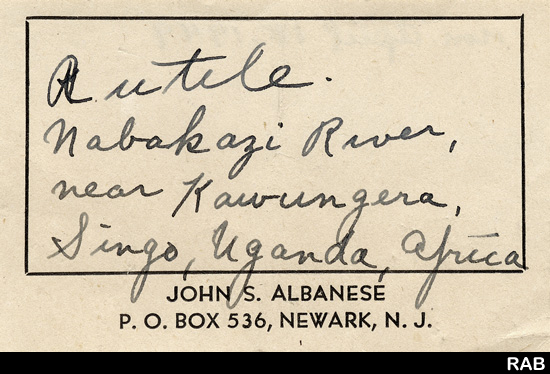 Rutile.
Nabakazi River,
near Kawungera,
Singo, Uganda, Africa
JOHN S. ALBANESE
P. O. BOX 536, NEWARK, N. J.
RAB